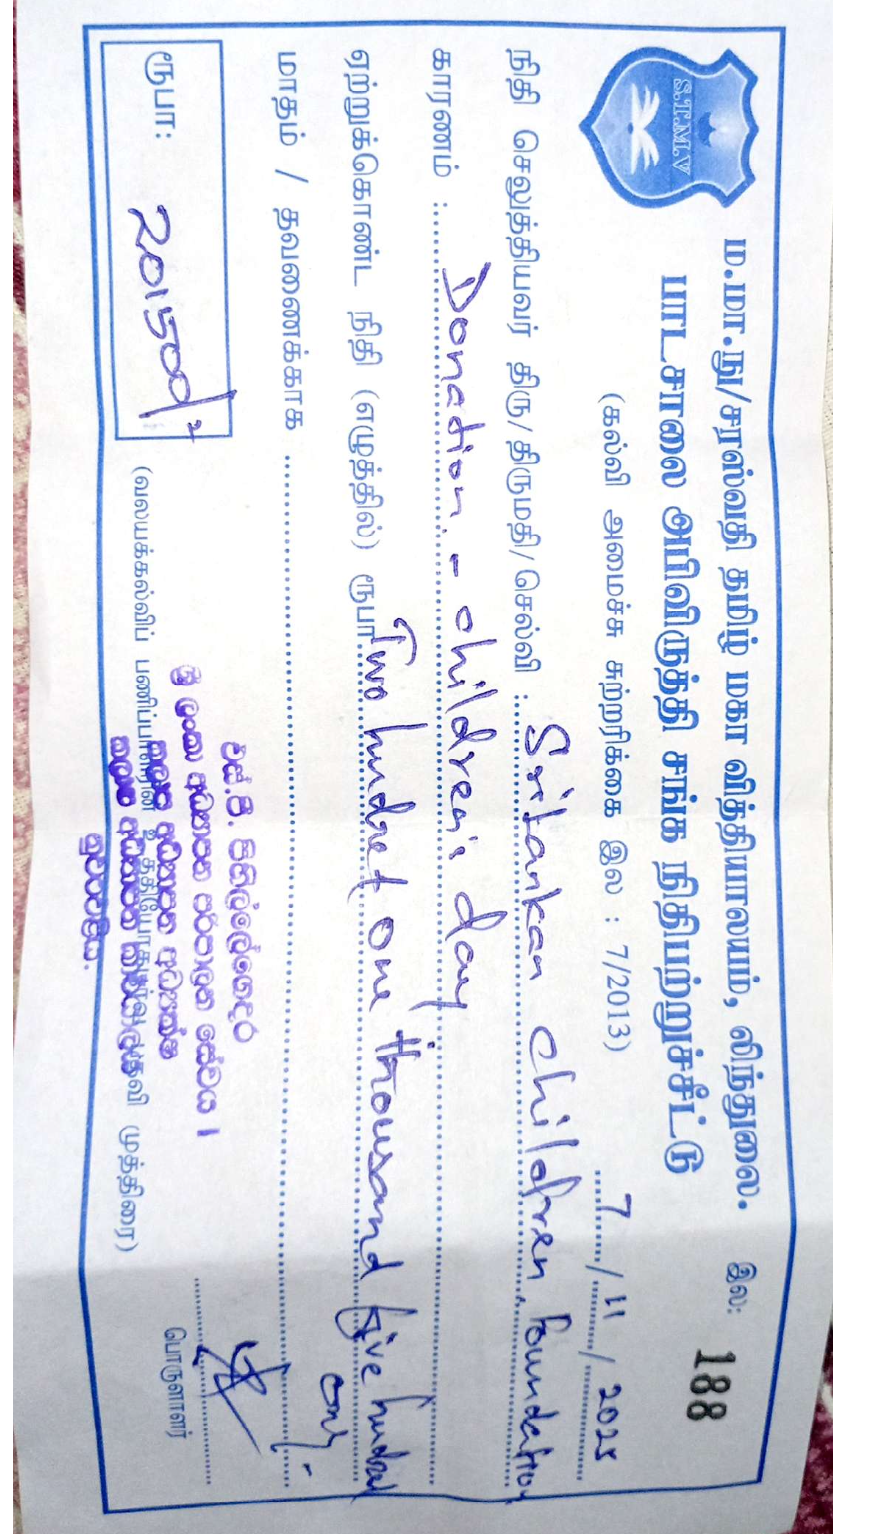 S.T.M.V
ம.மா.நு/சரஸ்வதி தமிழ் மகா வித்தியாலயம், லிந்துலை.
இல: 188
பாடசாலை அபிவிருத்தி சங்க நிதிபற்றுச்சீட்டு
(கல்வி அமைச்சு சுற்றறிக்கை இல : 7/2013)
7/11/2025
நிதி செலுத்தியவர் திரு/திருமதி/செல்வி : Srilankan children Foundation
காரணம் : Donation - children's day
ஏற்றுக்கொண்ட நிதி (எழுத்தில்) ரூபா Two hundret one thousand five hundred only.
மாதம் / தவணைக்காக
ரூபா: 201500/
(வலயக்கல்விப் முத்திரை)
பொருளாளர்